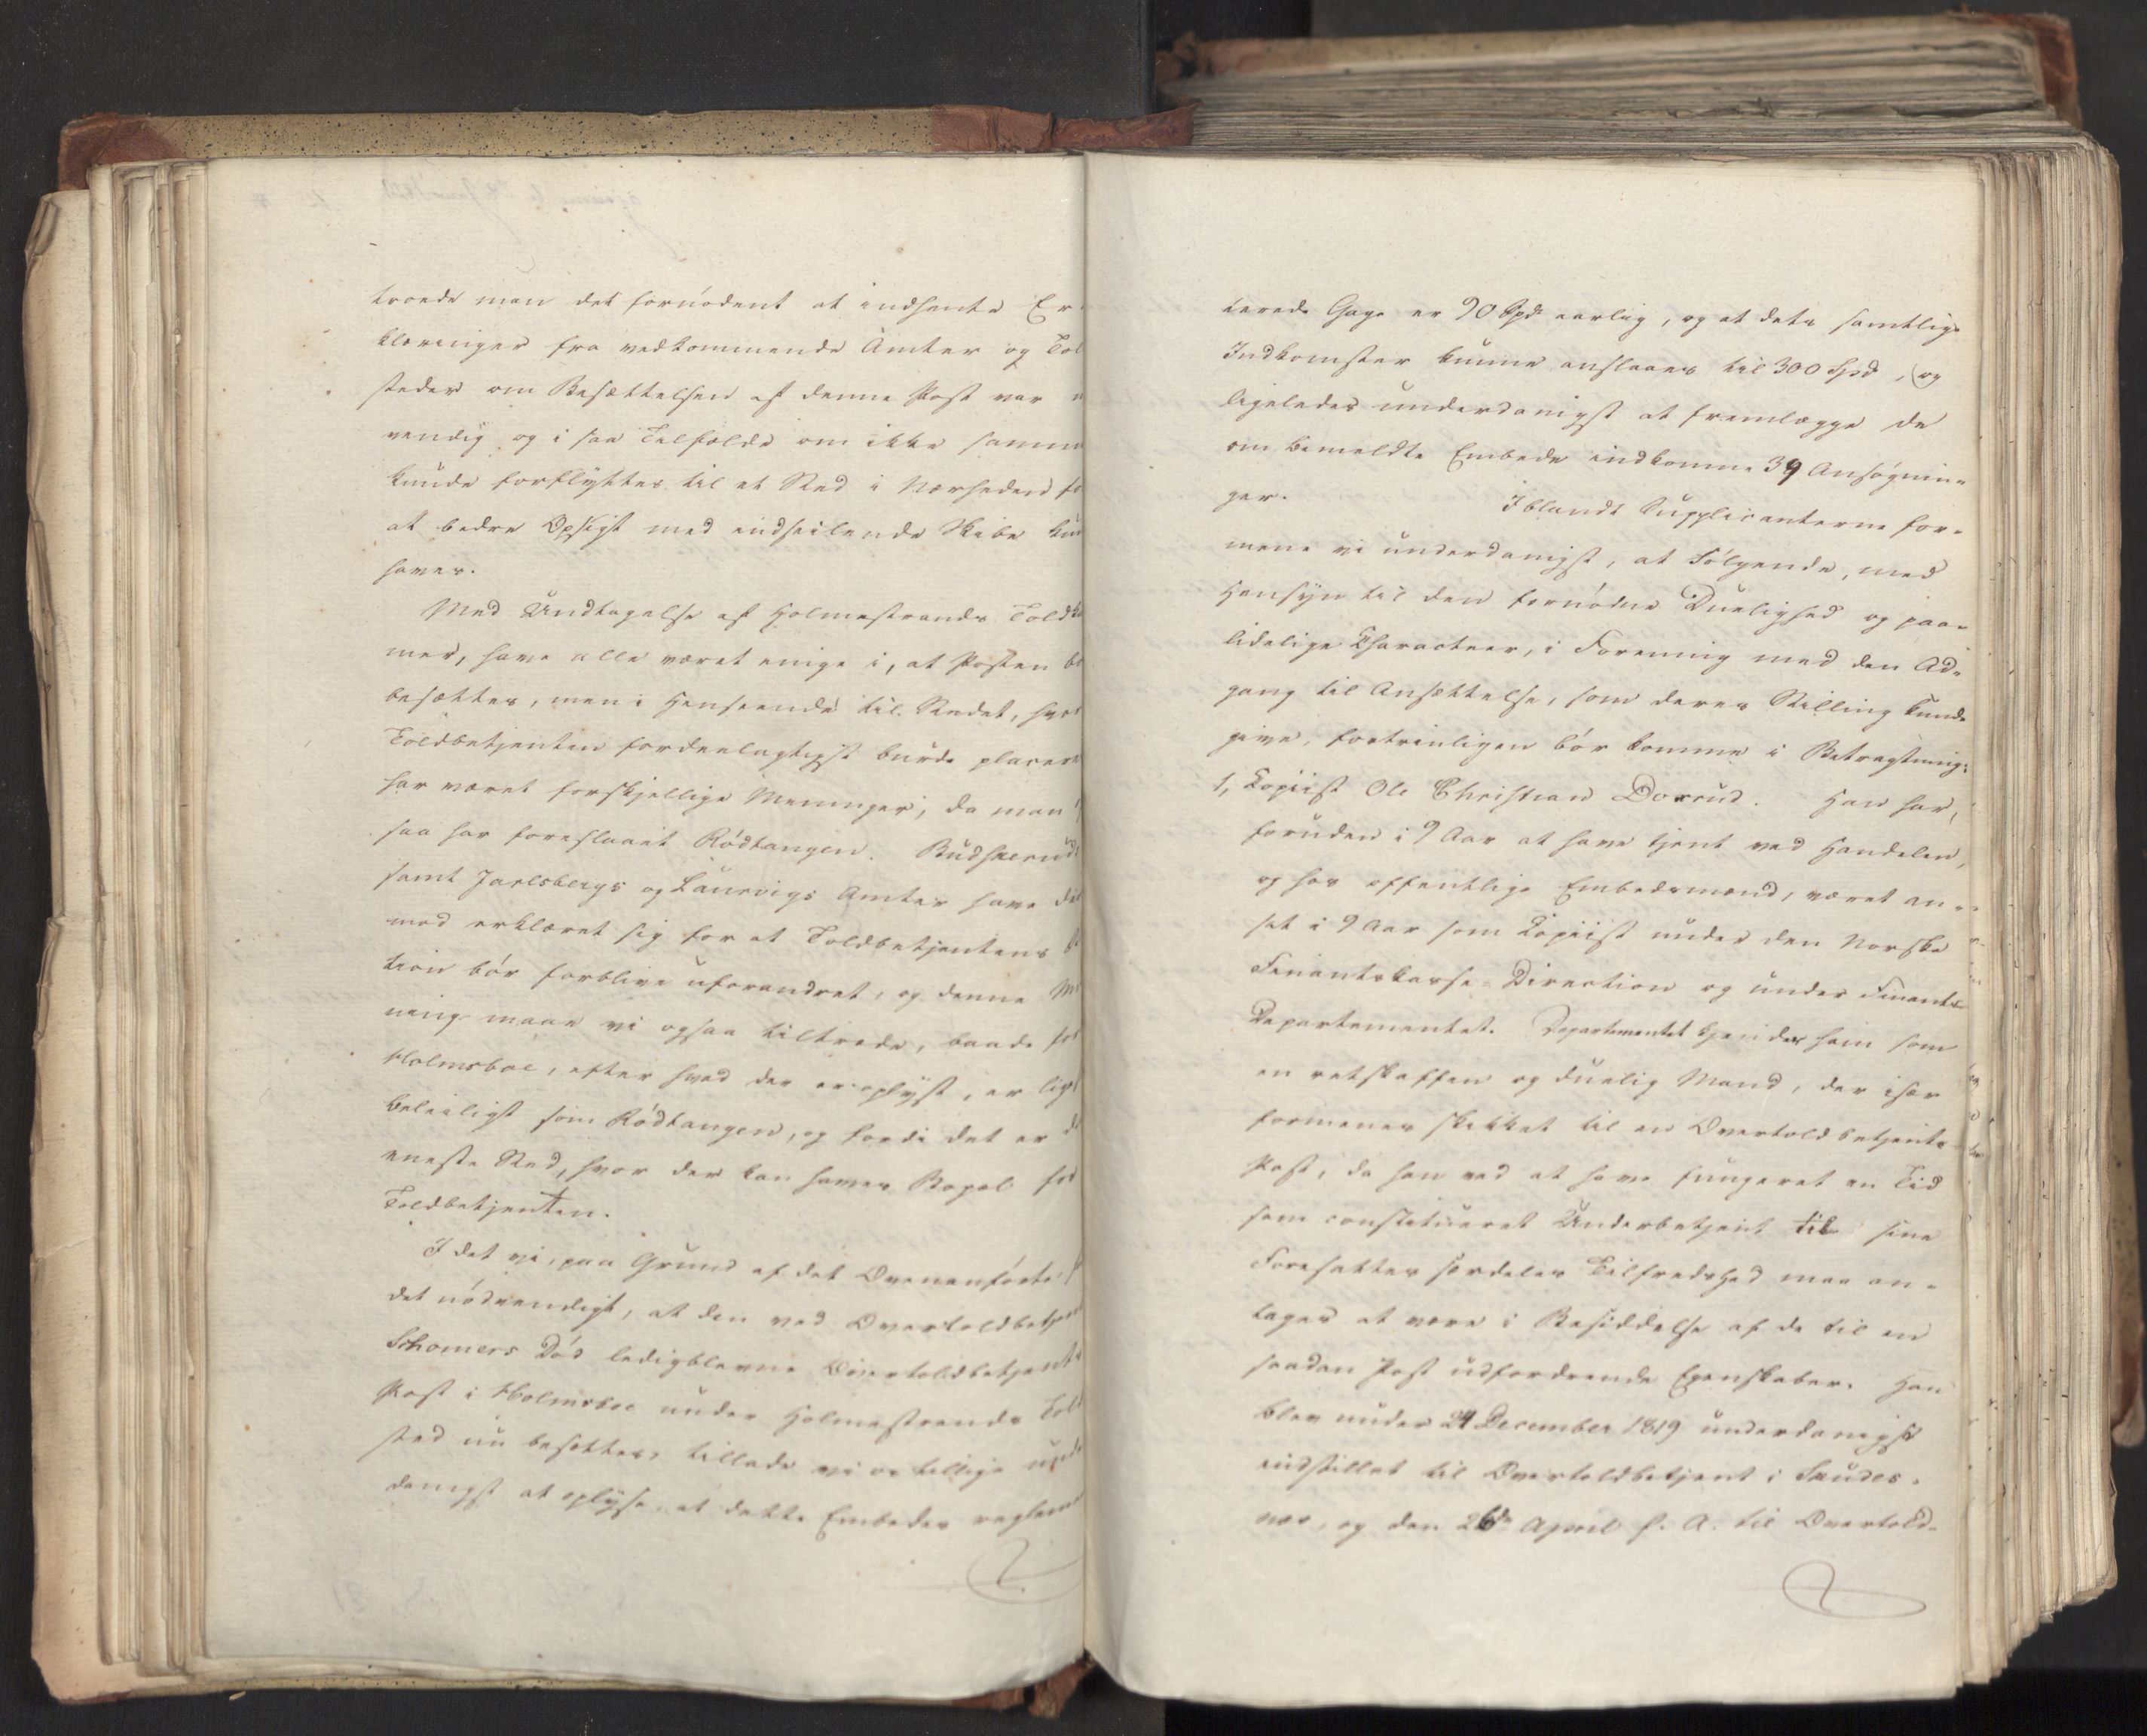 troede man det fornödent at indhente Er-
klæringer fra vedkommende Amter og Tol
steder om Besættelsen af denne Post var n
vendig og i saa Tilfælde om ikke samme
kunde forflyttes til et Sted i Nærheden fo
at bedre Opsigt med indseilende Skibe kun
haves.
Med Undtagelse af Holmestrands Toldka
mer, have alle været enige i, at Posten bö
besættes, men i Henseende til Stedet, hvor
Toldbetjenten fordeelagtigst burde placere
har været forskjellige Meninger, da man
saa har foreslaaet Rödtangen. Budskeruds
samt Jarlsbergs og Laurvigs Amter have der
mod erklæret sig for at Toldbetjentens St
tion bör forblive uforandret, og denne Me
ning maae vi ogsaa tiltræde, baade for
Holmsboe, efter hvad der er oplyst, er lige
beleiligt som Rödtangen, og fordi det er de
eneste Sted, hvor der kan haves Bopæl for
Toldbetjenten.
I det vi, paa Grund af det Ovenanförte,
det nödvendigt, at den ved Overtoldbetjent
Schomers Död ledigblevne Overtoldbetjent
Post i Holmsboe under Holmestrands Told
sted nu besættes, tillade vi os tillige unde
danigst at oplyse, at dette Embedes reglemen
terede Gage er 90 Spd aarlig, og at dets samtlige
Indkomster kunne anslaaes til 300 Spd, og
ligeledes underdanigst at fremlægge de
om bemeldte Embede indkomne 39 Ansögnin-
ger. Iblandt Supplicanterne for-
mene vi underdanigst, at Fölgende, med
Hensyn til den fornödne Duelighed og paa-
lidelige Charakteer, i Forening med den Ad-
gang til Ansættelse, som deres Stilling kunde
give, fortrinligen bör komme i Betragtning:
1, Copiist Ole Christian Dorrud. Han har,
foruden i 9 Aar at have tjent ved Handelen,
og hos offentlige Embedsmænd, været an-
sat i 9 Aar som Copiist under den Norske
Finantskasse-Direction og under Finants-
Departementet. Departementet kjender ham som
en retskaffen og duelig Mand, der især
formenes skikket til en Overtoldbetjents
Post, da han ved at have fungeret en Tid
som constitueret Underbetjent til sine
Foresattes særdeles Tilfredshed maa an-
tages at være i Besiddelse af de til en
saadan Post udfordrende Egenskaber. Han
blev under 24 December 1819 underdanigst
indstillet til Overtoldbetjent i Skudes-
næs, og den 26de April f. A. til Overtold-